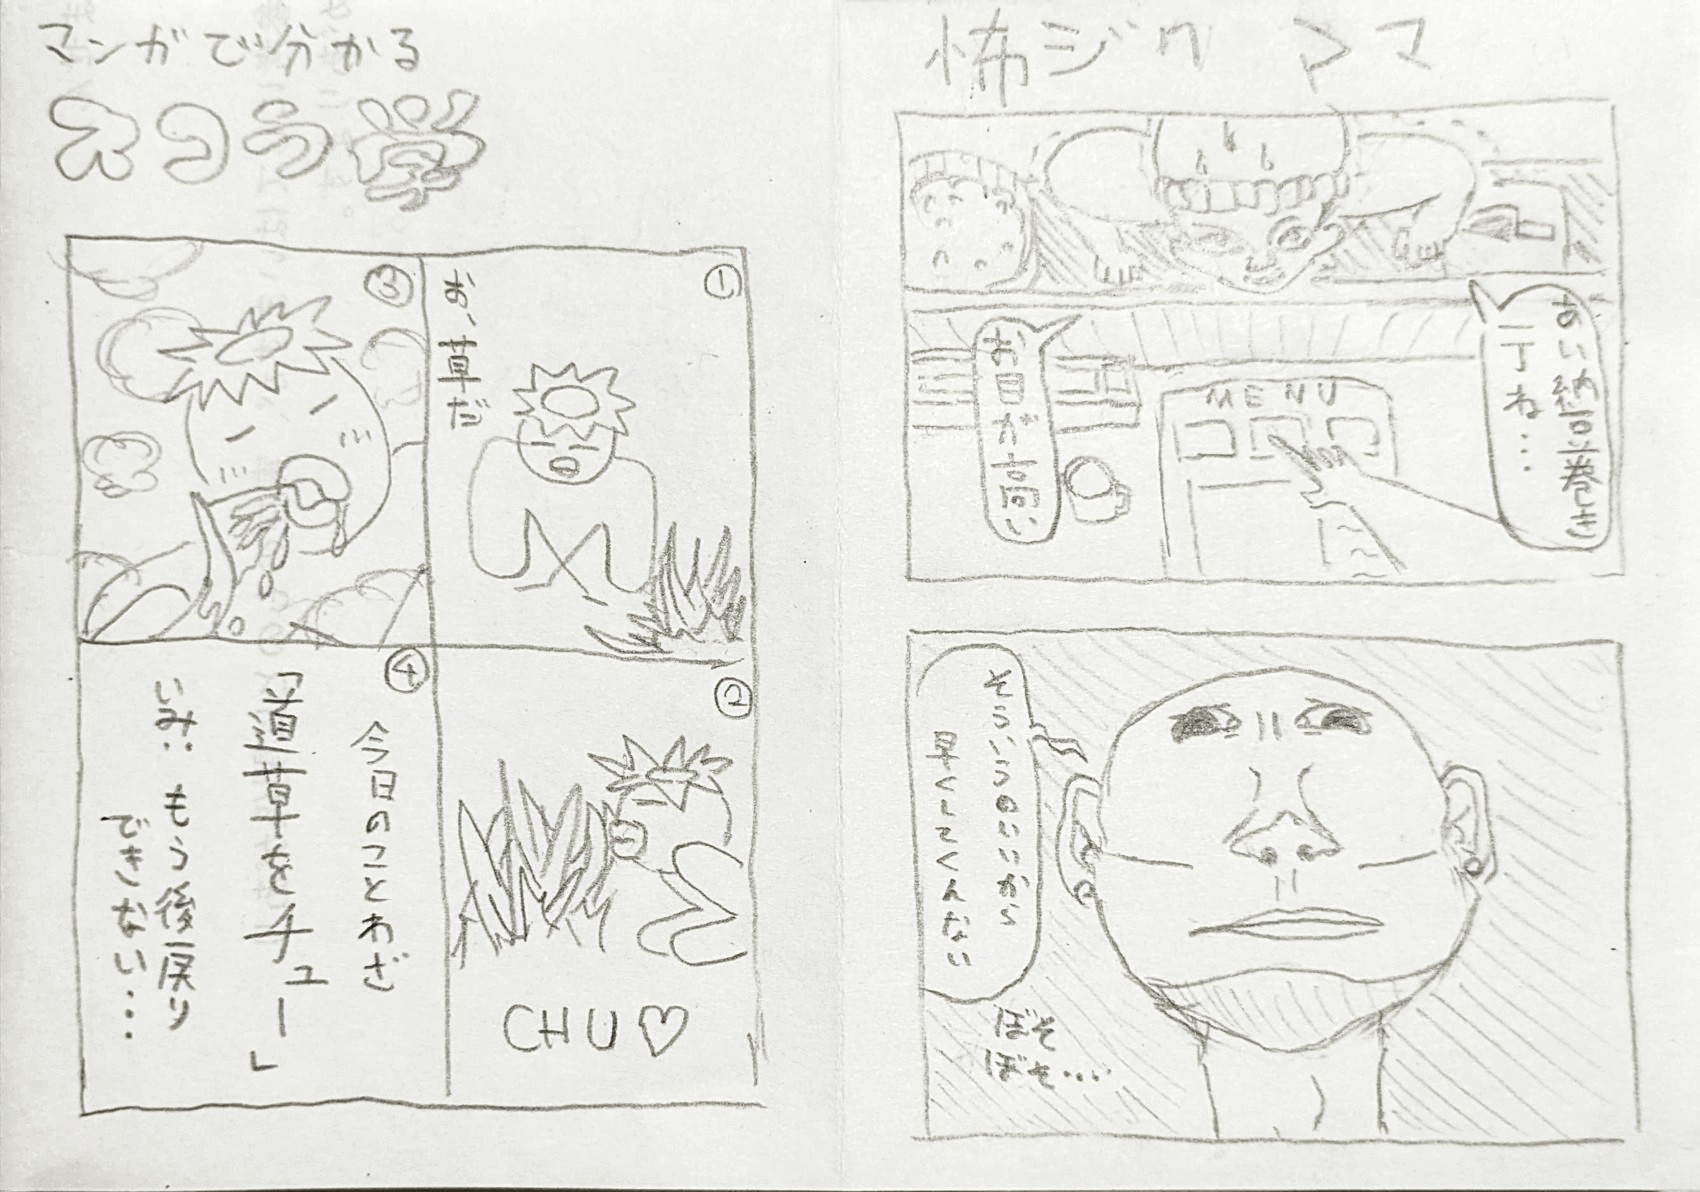 マンガで分かる
ヌコラ学
①
お、草だ
②
CHU♡
③
④
今日のことわざ
「道草をチュー」
いみ:もう後戻り
できない…
怖ジクママ
あい納豆巻き
一丁ね…
お目が高い
MENU
そういうのいいから
早くしてくんない
ぼそ
ぼそ…